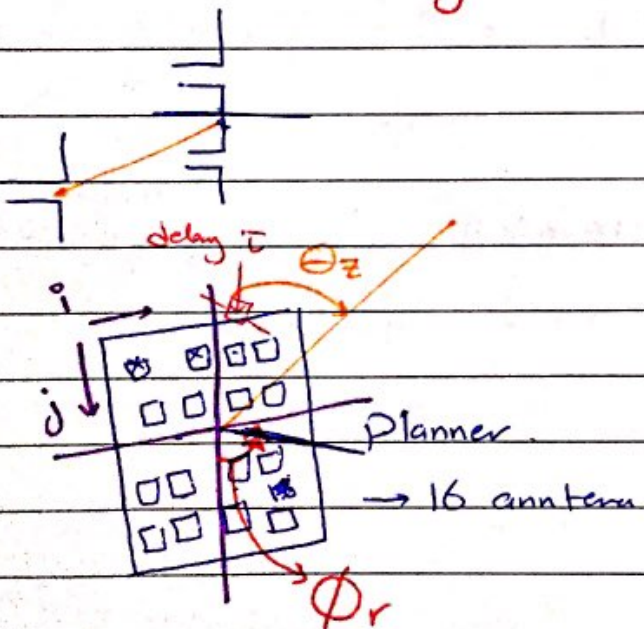 delay τ
θz
i
j
Planner.
→ 16 anntena
ϕr